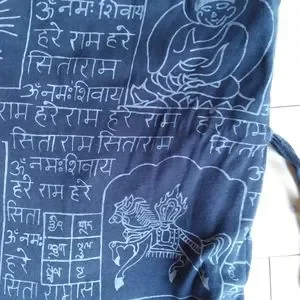 ॐ नमः शिवाय
हरे राम हरे
सिताराम
ॐ नमः शिवाय
हरे राम हरे राम हरे राम
सिताराम सिताराम
ॐ नमः शिवाय
हरे राम हरे
सिता
ॐ नमः
हरे
सिता राम